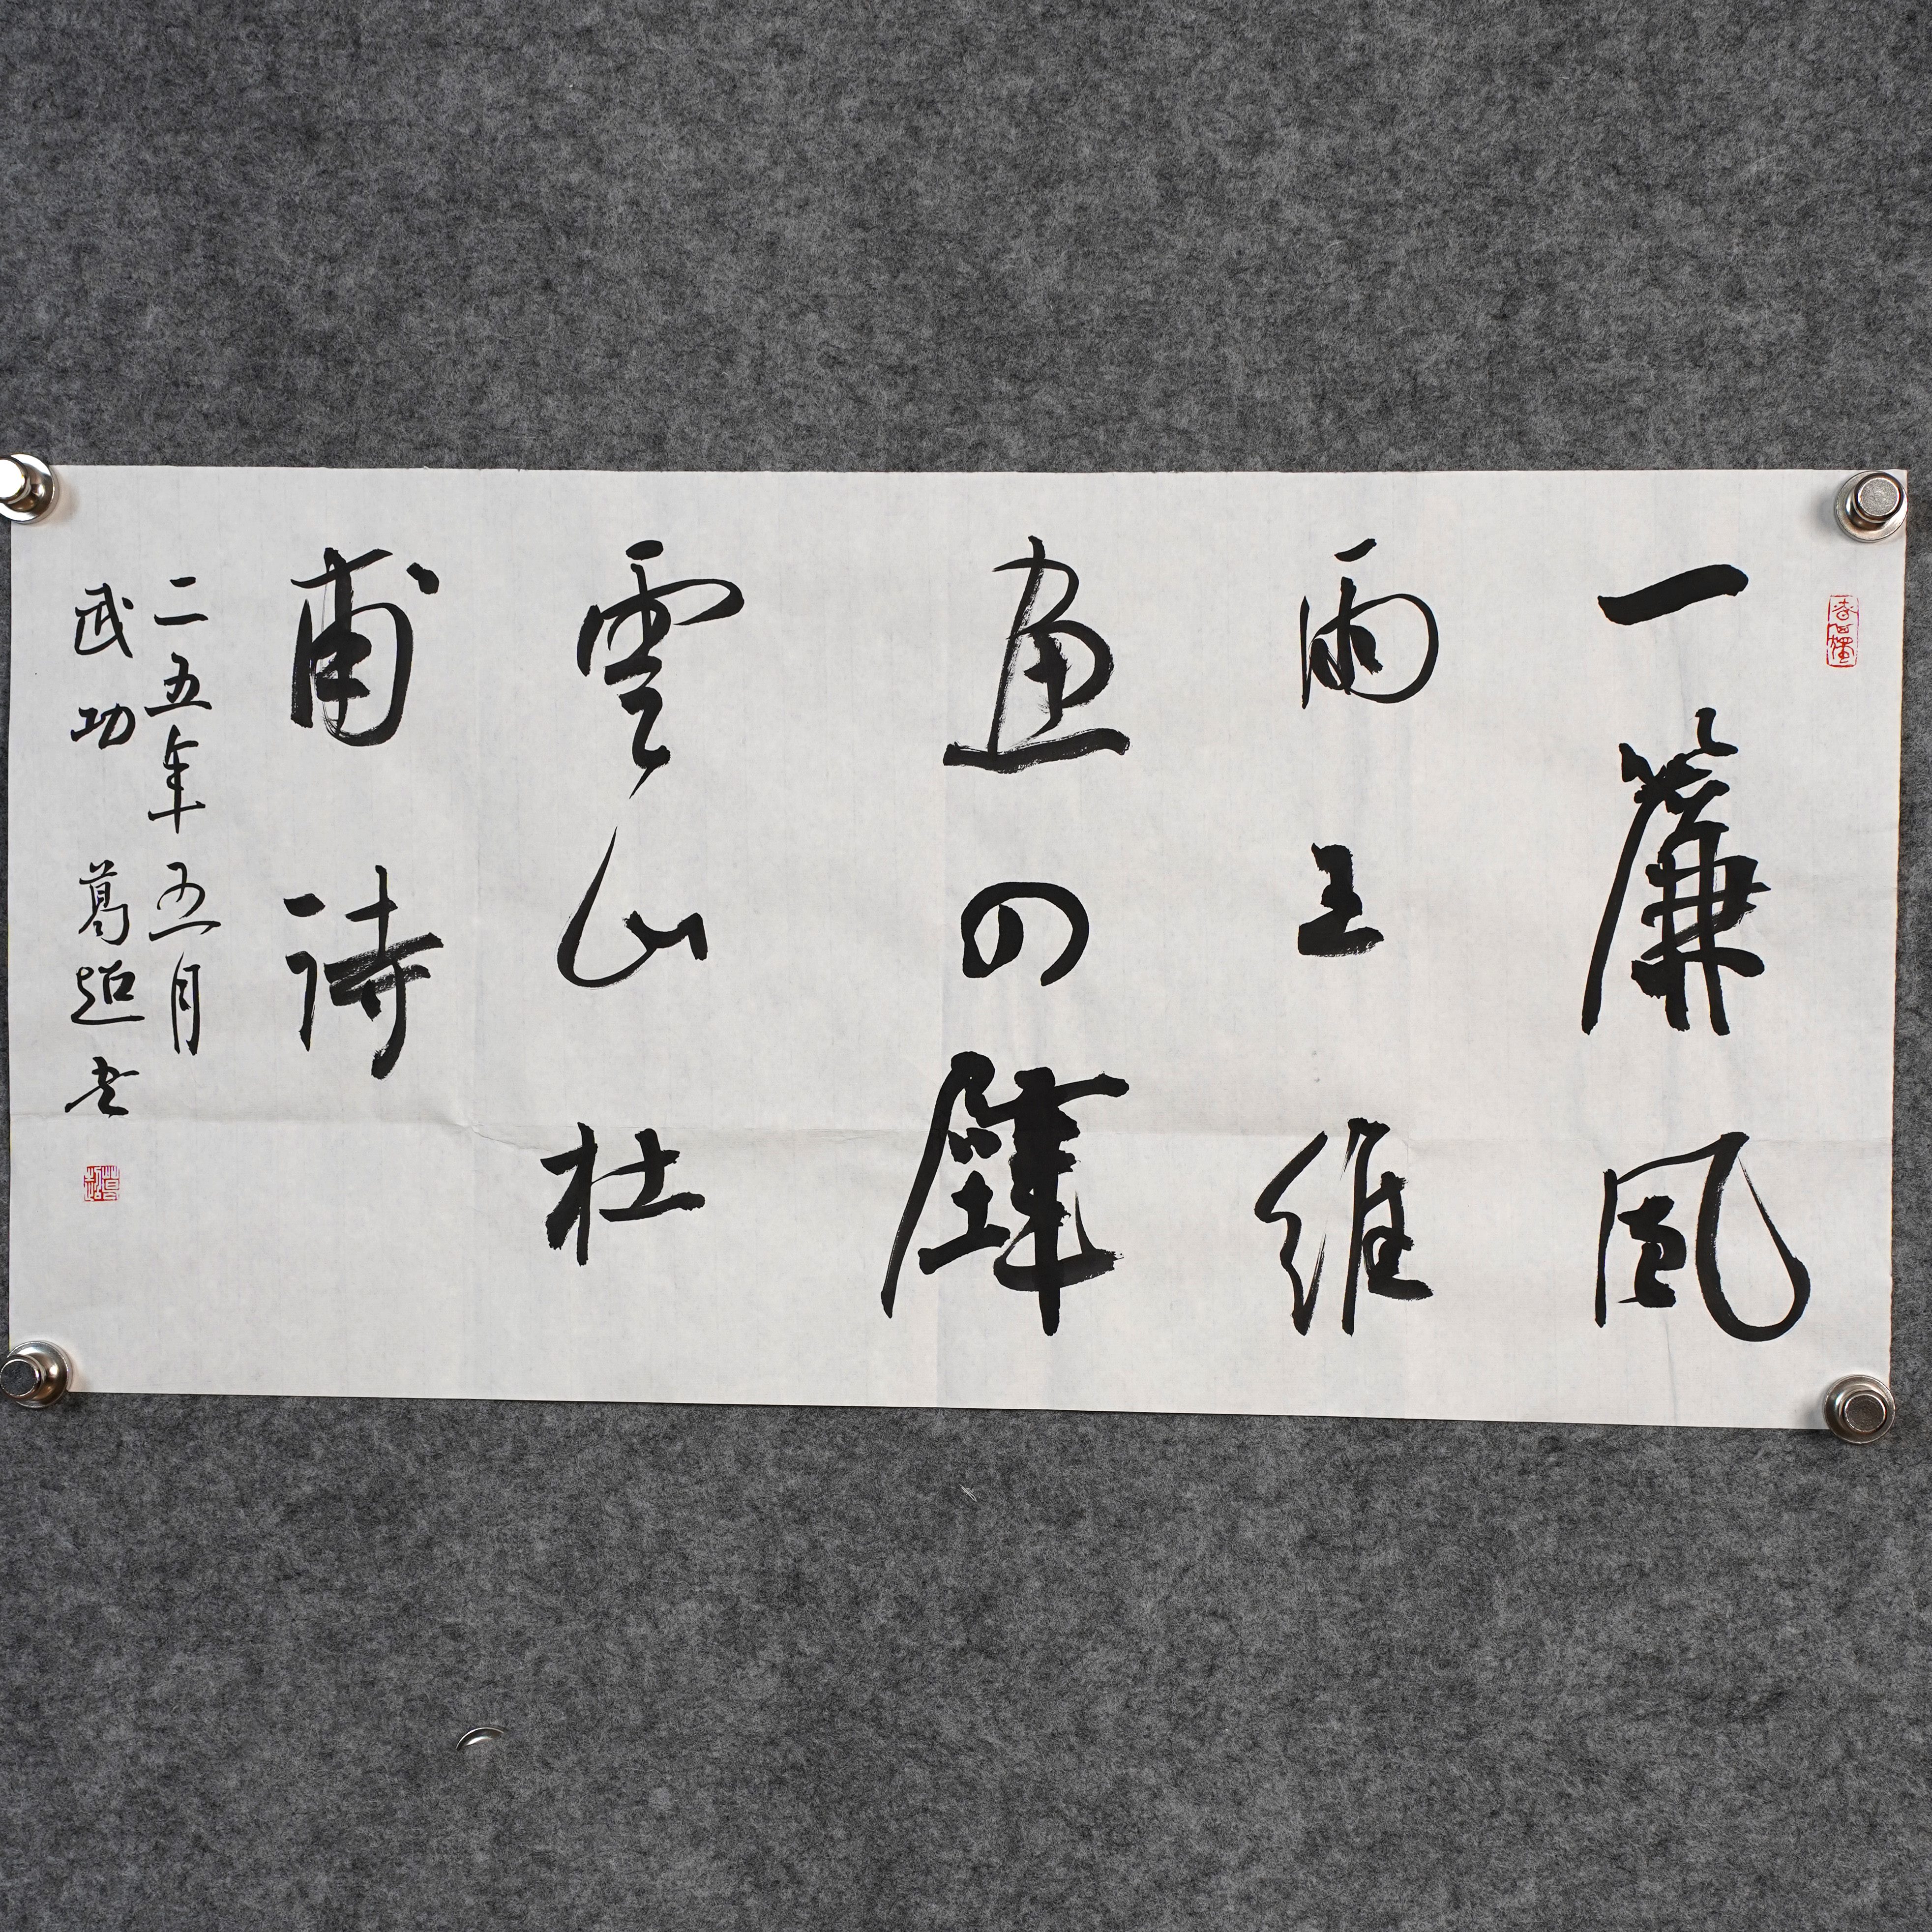 一簾風
雨王維
畫四壁
雲山杜
甫詩
二五年五月
武功 葛超書